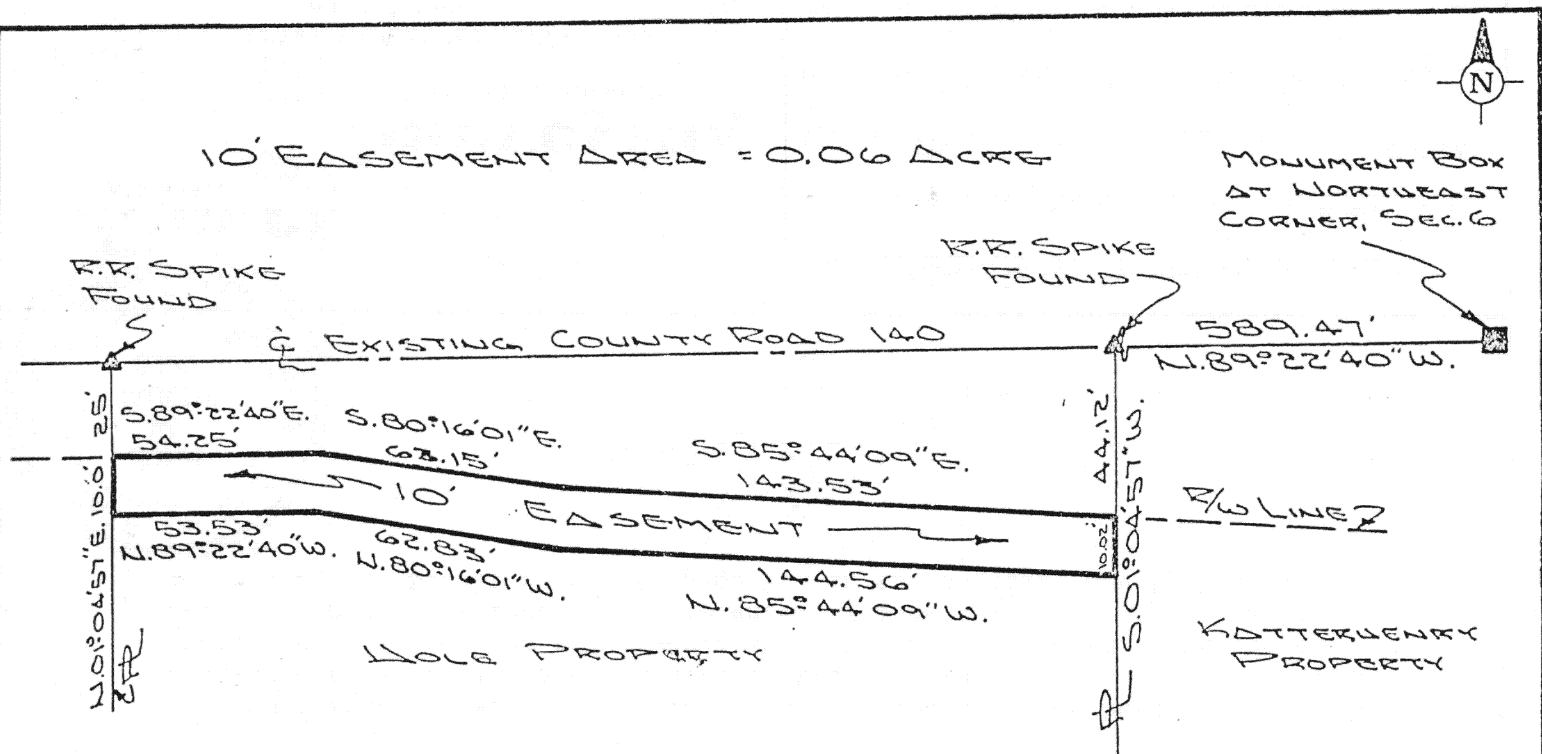 N
10' EASEMENT AREA = 0.06 ACRE
MONUMENT BOX
AT NORTHEAST
CORNER, SEC. 6
R.R. SPIKE
FOUND
R.R. SPIKE
FOUND
℄ EXISTING COUNTY ROAD 140
589.47'
N.89°22'40"W.
25'
S.89°22'40"E.
54.25'
S.80°16'01"E.
S.85°44'09"E.
143.53'
44.12'
10.0'
10' EASEMENT
R/W LINE
10.02'
53.53'
N.89°22'40"W.
62.83'
N.80°16'01"W.
144.56'
N.85°44'09"W.
N.01°04'57"E.
S.01°04'57"W.
HOLE PROPERTY
KATTERHENRY
PROPERTY